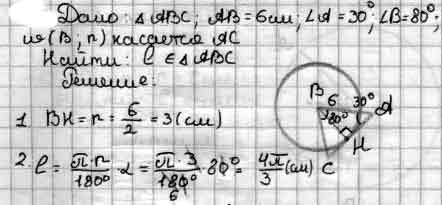 Дано: △ABC; AB = 6см; ∠A = 30°; ∠B = 80°;
(B; r) касается AC
Найти: l ∈ △ABC
Решение:
1. BH = r = 6/2 = 3 (см)
2. l = π·r/180° · α = π·3/180° · 80° = 4π/3 (см)
6
B 6 30° A
80°
H
C